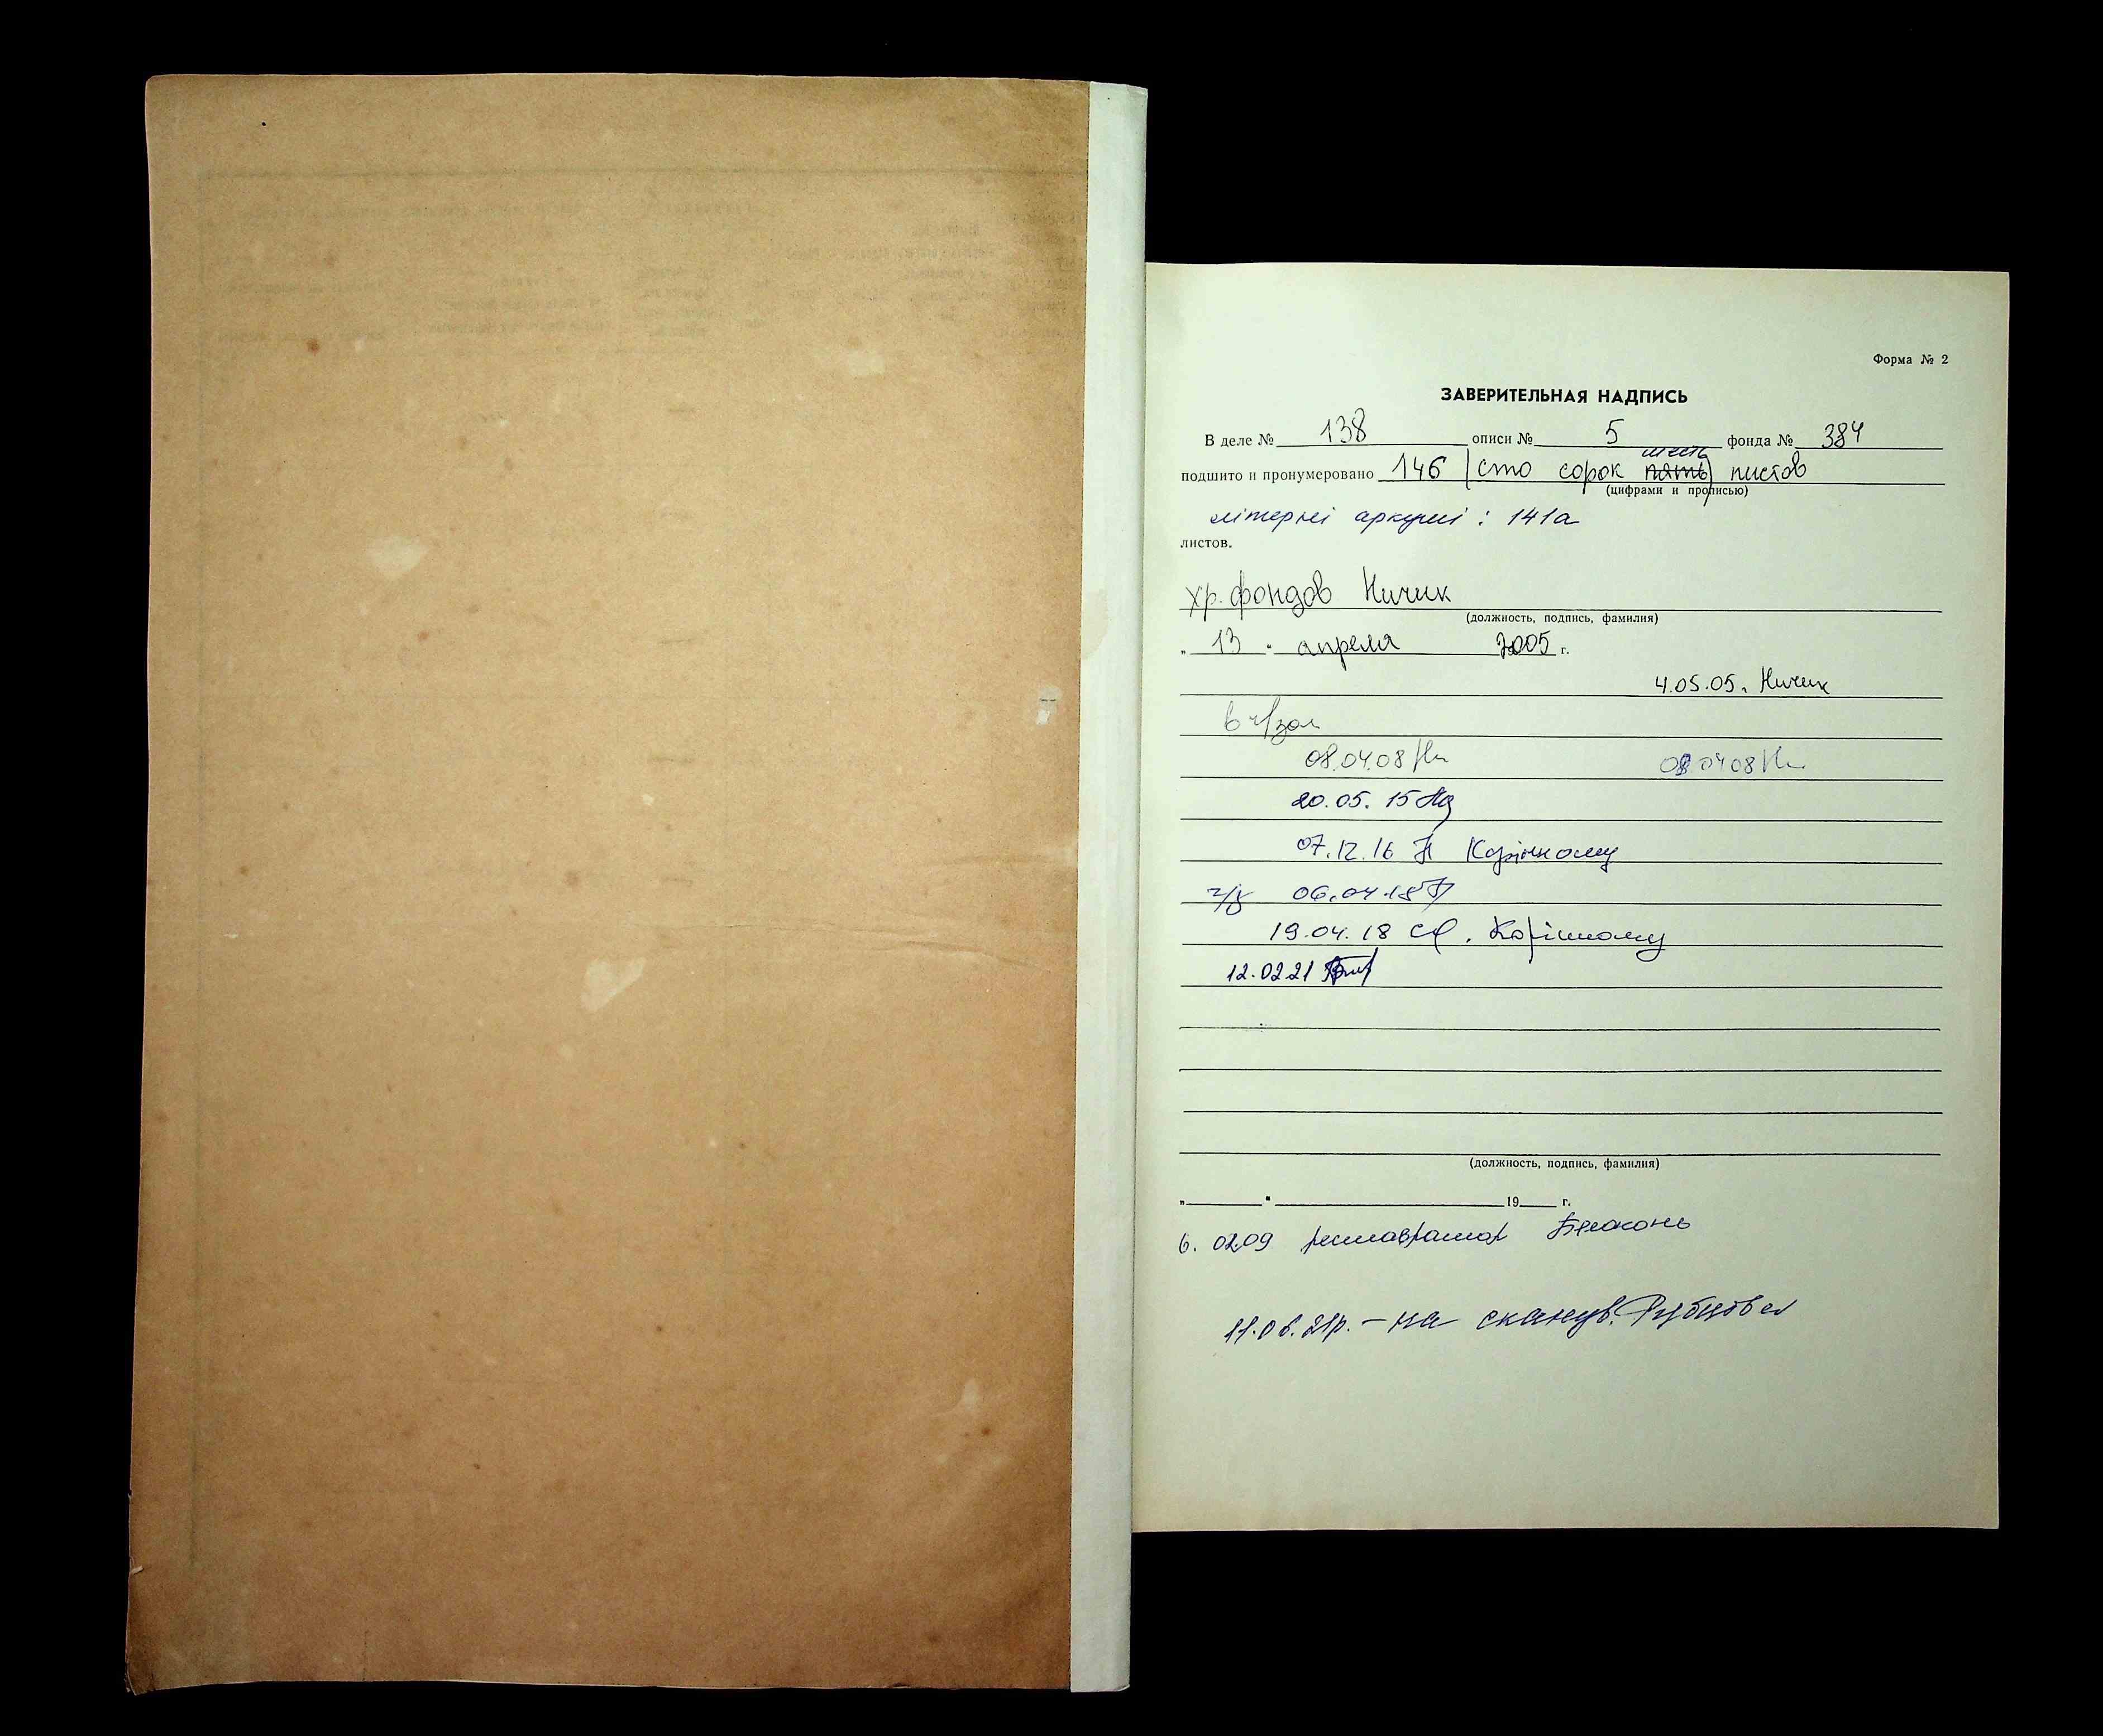 Форма № 2
ЗАВЕРИТЕЛЬНАЯ НАДПИСЬ
В деле № 138 описи № 5 фонда № 384
шесть
подшито и пронумеровано 146 (сто сорок пять) листов
(цифрами и прописью)
літерні аркуші : 141а
листов.
хр. фондов Ничик
(должность, подпись, фамилия)
„ 13 “ апреля 2005 г.
4.05.05. Ничик
в ч/зал
08.04.08 08.04.08
20.05.15
07.12.16
ч/з 06.04.18
19.04.18 Корінному
12.02.21
(должность, подпись, фамилия)
„ “ 19 г.
6.02.09 реставратор
11.06.21р. – на сканув. Рубцовел